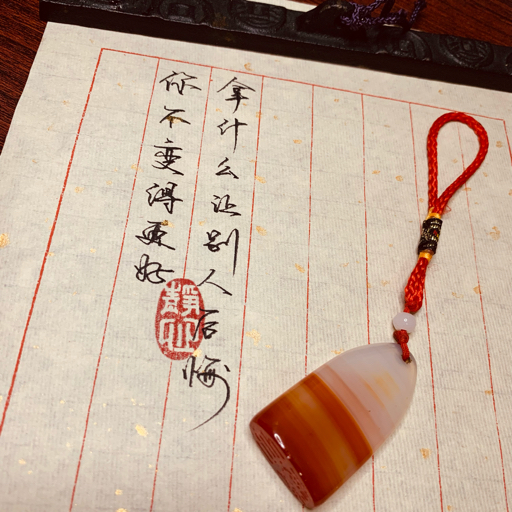 你不变得更好
拿什么让别人后悔
靜心